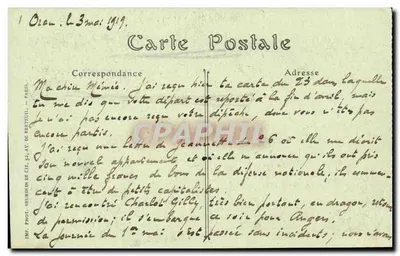 1 Oran, le 3 mai 1919.
Carte Postale
Correspondance
Adresse
Ma chère Mémée. J'ai reçu hier ta carte du 23 dans laquelle
tu me dis que votre départ est reposté à la fin d'avril, mais
je n'ai pas encore reçu votre dépêche donc vous n'êtes pas
encore partis.
J'ai reçu une lettre de Jeannette le 26 où elle me décrit
son nouvel appartement et où elle m'annonce qu'ils ont pris
cinq mille francs de bons de la défense nationale, ils commen-
cent à être du petits capitalistes.
J'ai rencontré Charlot Gilly, très bien portant, en dragon, retour
de permission; il s'embarque ce soir pour Angers.
La journée du 1er mai s'est passée sans incidents; nous n'avons